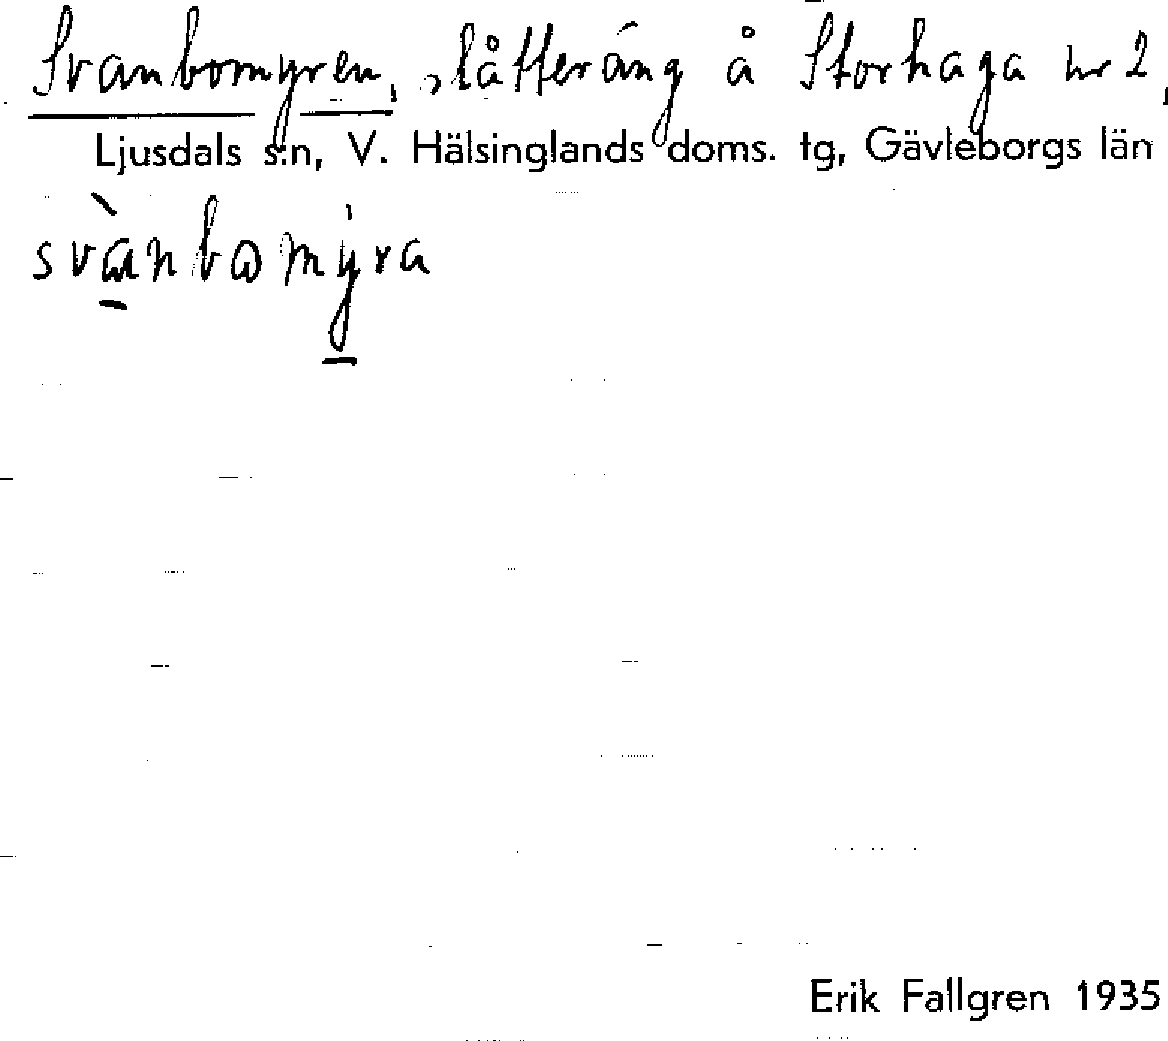 Svanbomyren, slåtteräng å Storhaga nr 2,
Ljusdals s:n, V. Hälsinglands doms. tg, Gävleborgs län
svànbomýra
Erik Fallgren 1935